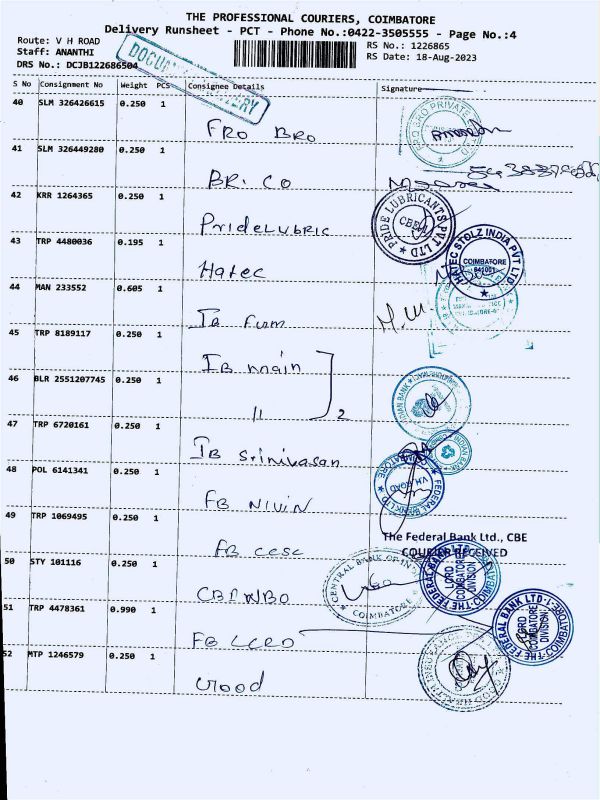 THE PROFESSIONAL COURIERS, COIMBATORE
Delivery Runsheet - PCT - Phone No.:0422-3505555 - Page No.:4
Route: V H ROAD
RS No.: 1226865
Staff: ANANTHI
RS Date: 18-Aug-2023
DRS No.: DCJB122686504
S No Consignment No Weight PCS Consignee Details Signature
40 SLM 326426615 0.250 1
FRO BRO
41 SLM 326449280 0.250 1
BR. CO
42 KRR 1264365 0.250 1
PrideLubric
PRIDE LUBRICANTS PVT LTD
43 TRP 4480036 0.195 1
Hatec
HATEC STOLZ INDIA PVT LTD
COIMBATORE
641001
44 MAN 233552 0.605 1
IB Fum
45 TRP 8189117 0.250 1
IB main
46 BLR 2551207745 0.250 1
11 2
INDIAN BANK
47 TRP 6720161 0.250 1
IB Srinivasan
INDIAN BANK
48 POL 6141341 0.250 1
FB NIVIN
FEDERAL BANK LTD
V.H. ROAD
COIMBATORE
49 TRP 1069495 0.250 1
The Federal Bank Ltd., CBE
COURIER RECEIVED
FB ccsc
50 STY 101116 0.250 1
CENTRAL BANK OF INDIA
COIMBATORE
THE FEDERAL BANK LTD
LCRD
COIMBATORE
DIVISION
51 TRP 4478361 0.990 1
THE FEDERAL BANK LTD
LCRD
COIMBATORE
DIVISION
FB LCRD
52 MTP 1246579 0.250 1
Wood